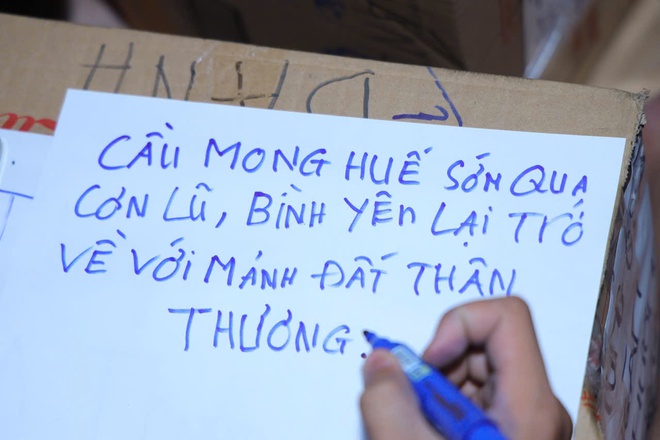 CẦU MONG HUẾ SỚM QUA
CƠN LŨ, BÌNH YÊN LẠI TRỞ
VỀ VỚI MẢNH ĐẤT THÂN
THƯƠNG.